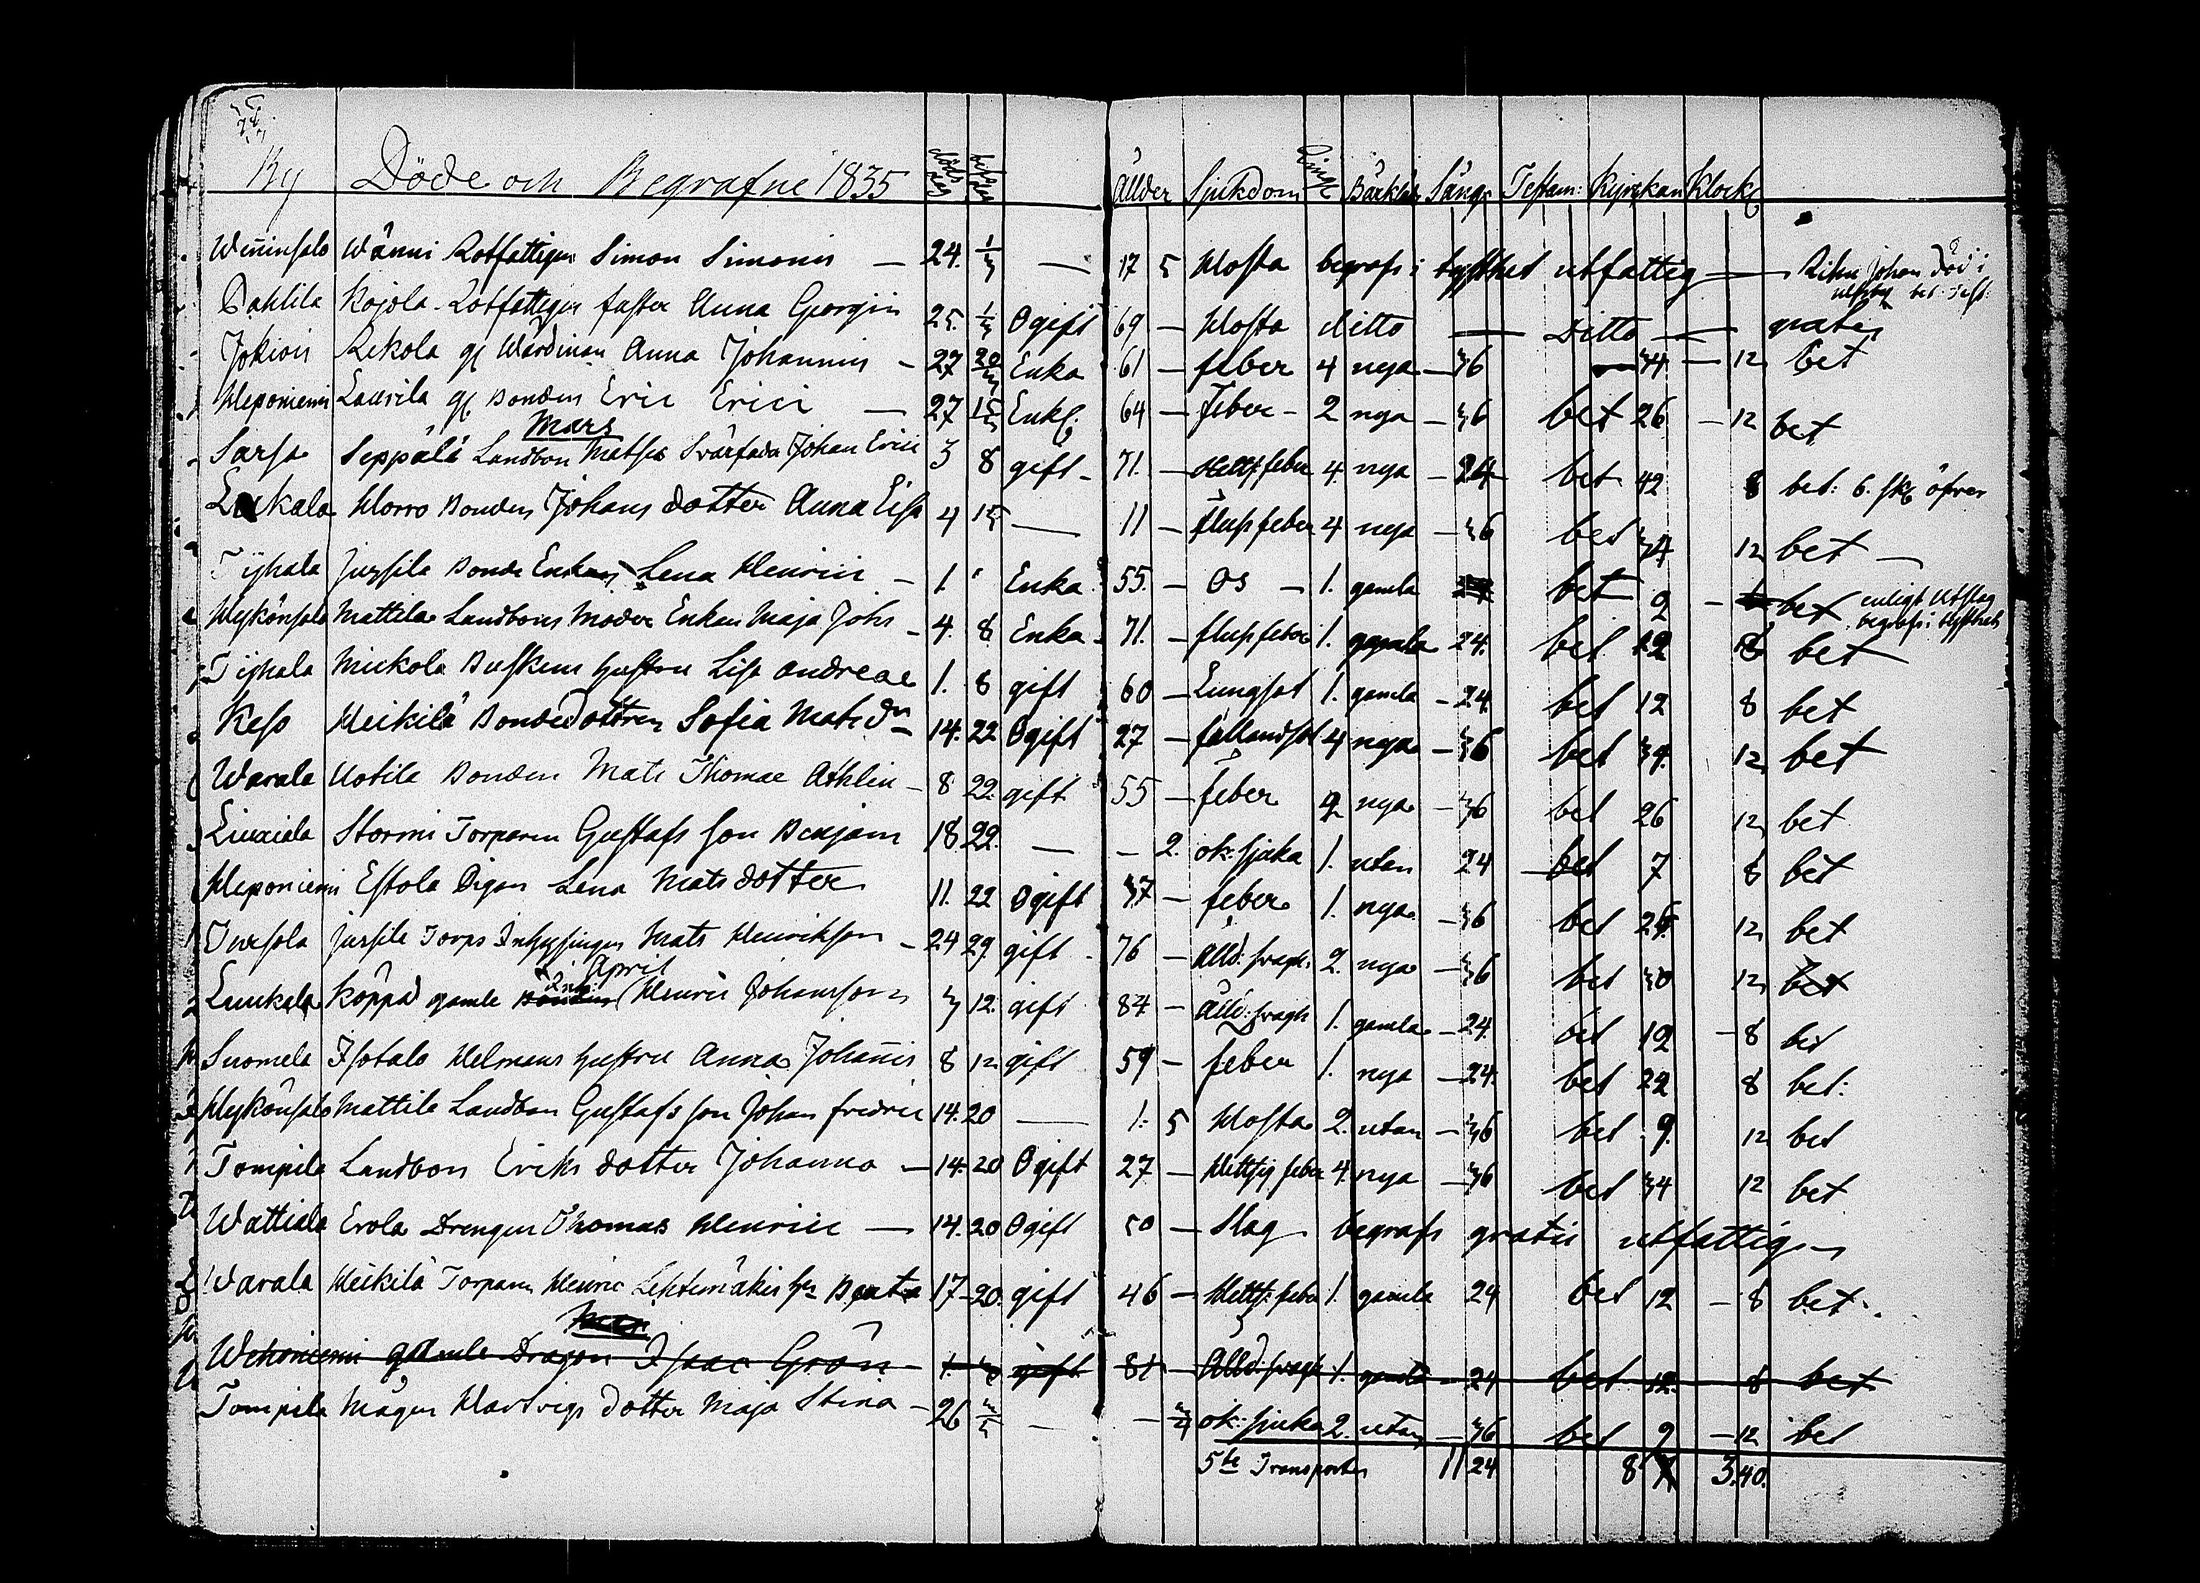 By Döde och Begrafne 1835 Ållder Sjukdom Ringn Bårkläde Sång Testam: Kyrkan Klock
Wäninsalo Wänni Rotfattigen Simon Simonis — 24. 1/3 — 17 5 Hosta begrafs i tysthet utfattig — Johan död i
Dahlila Kojola Rotfattigen faster Anna Georgii 25. 1/3 Ogift 69 — Hosta ditto — Ditto — gratis
Jokiois Rekola gl Wärdinan Anna Johannis — 27 Enka 61 — feber 4 nya — 36 34 — 12 bet
Heponiemi Laurila gl Bonden Eric Erici — 27 15/3 Enkl. 64 — Feber — 2 nya — 36 bet 26 — 12 bet
Mars
Sarsa Seppälä Landbon Matses Svärfader Johan Erici 3 8 gift — 71. — Hettz: feber 4. nya — 24 bet 42 8 bet: 6. sk öfver
Liukala Horro Bonden Johans dotter Anna Lisa 4 15 — 11 — flussfeber 4 nya — 36 bet 34 12 bet —
Tyhala Jussila Bonde Enkan Lena Henrici — 1. Enka 55. — Os — 1. gamla bet 9 — bet enligt Utslag
begrafs i tysthet
Hykönsalo Mattila Landbons Moder Enkan Maja Johs — 4. 8 Enka — 71. — flussfeber 1. gamla 24. bet 12 8 bet
Tyhala Mickola Buskens hustru Lisa Andreae 1. 8 gift 60 — Lungsot 1. gamla — 24. bet 12 8 bet
Keso Heikilä Bondedottren Sofia Mats dr — 14. 22 Ogift 27 — fallandsot 4 nya — 36 bet 34. 12 bet
Warala Uotila Bonden Mats Thomae Athlin — 8 22. gift 55 — feber 2 nya — 36 bet 26 12 bet
Liuxiala Stormi Torparen Gustafs son Benjam 18. 22. — — 2. ok: sjuka 1. utan 24 bet 7 8 bet
Heponiemi Estola Pigan Lena Mats dotter 11. 22 Ogift 37 — feber 1. nya — 36 bet 26. 12 bet
Tursola Jussila Torps Inhysingen Mats Henrikson — 24 29 gift — 76 — Ålld: svagh. 2. nya — 36 bet 30 12 bet
April
Liukala Köppä gamle Bonden Inh: Henric Johansson 3 12. gift 84 — Ålld: svagh 1. gamla — 24. bet 12 — 8 bet
Suomela Isotalo Helmans hustru Anna Johannis 8 12 gift 59 — feber 1. nya — 24. bet 22 8 bet:
Hykönsalo Mattila Landbon Gustafs son Johan fredric 14. 20 — 1. 5 Hosta 2. utan — 36 bet 9. 12 bet
Tompila Landbon Eriks dotter Johanna — 14. 20 Ogift 27 — Hettsig feber 4. nya — 36 bet 34 12 bet
Wattiala Erola Drengen Thomas Henrici — 14. 20 Ogift 50 — Slag begrafs gratis utfattig
Warala Heikilä Torparn Henric Lehtimäkis hr Beata 17 — 20. gift 46 — Hetts: feber 1. gamla 24 bet 12 — 8 bet.
Wehoniemi gamle Dragon Isaac Grön — 1. 3 gift 81 — Ålld: svagh 1. gamla — 24 bet 12. 8 bet
Tompila Mågen Hartvigs dotter Maja Stina — 26 3/5 — — 3/4 ok: sjuka 2. utan — 36 bet 9 — 12 bet
5te Transporten 11 24 8 3.40.